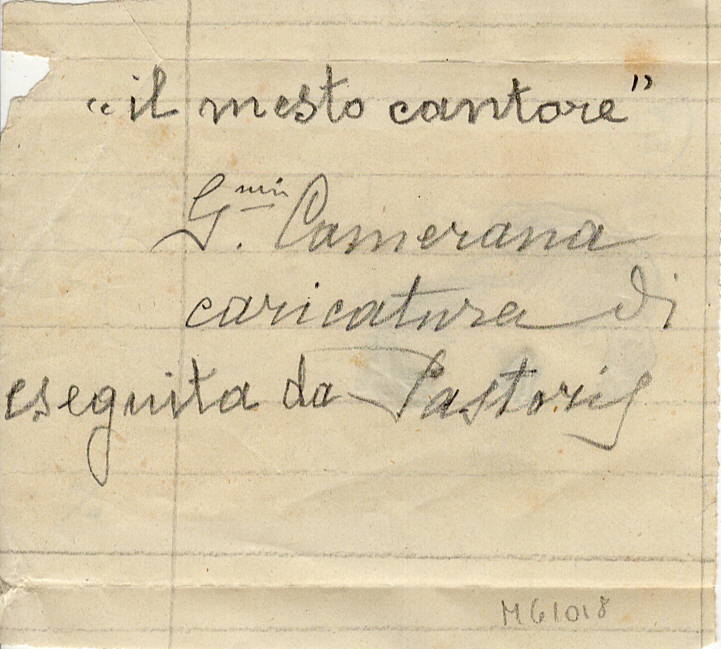 "il mesto cantore"
G. Camerana
caricatura di
eseguita da Pastoris
M61018